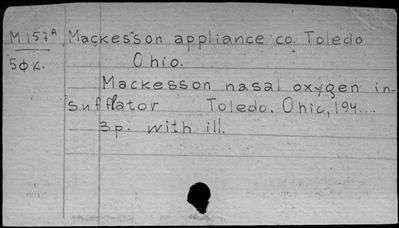 M.157ᴬ Mackesson appliance co. Toledo
5фк. Ohio.
Mackesson nasal oxygen in-
sufflator Toledo. Ohio, 194...
3p. with ill.